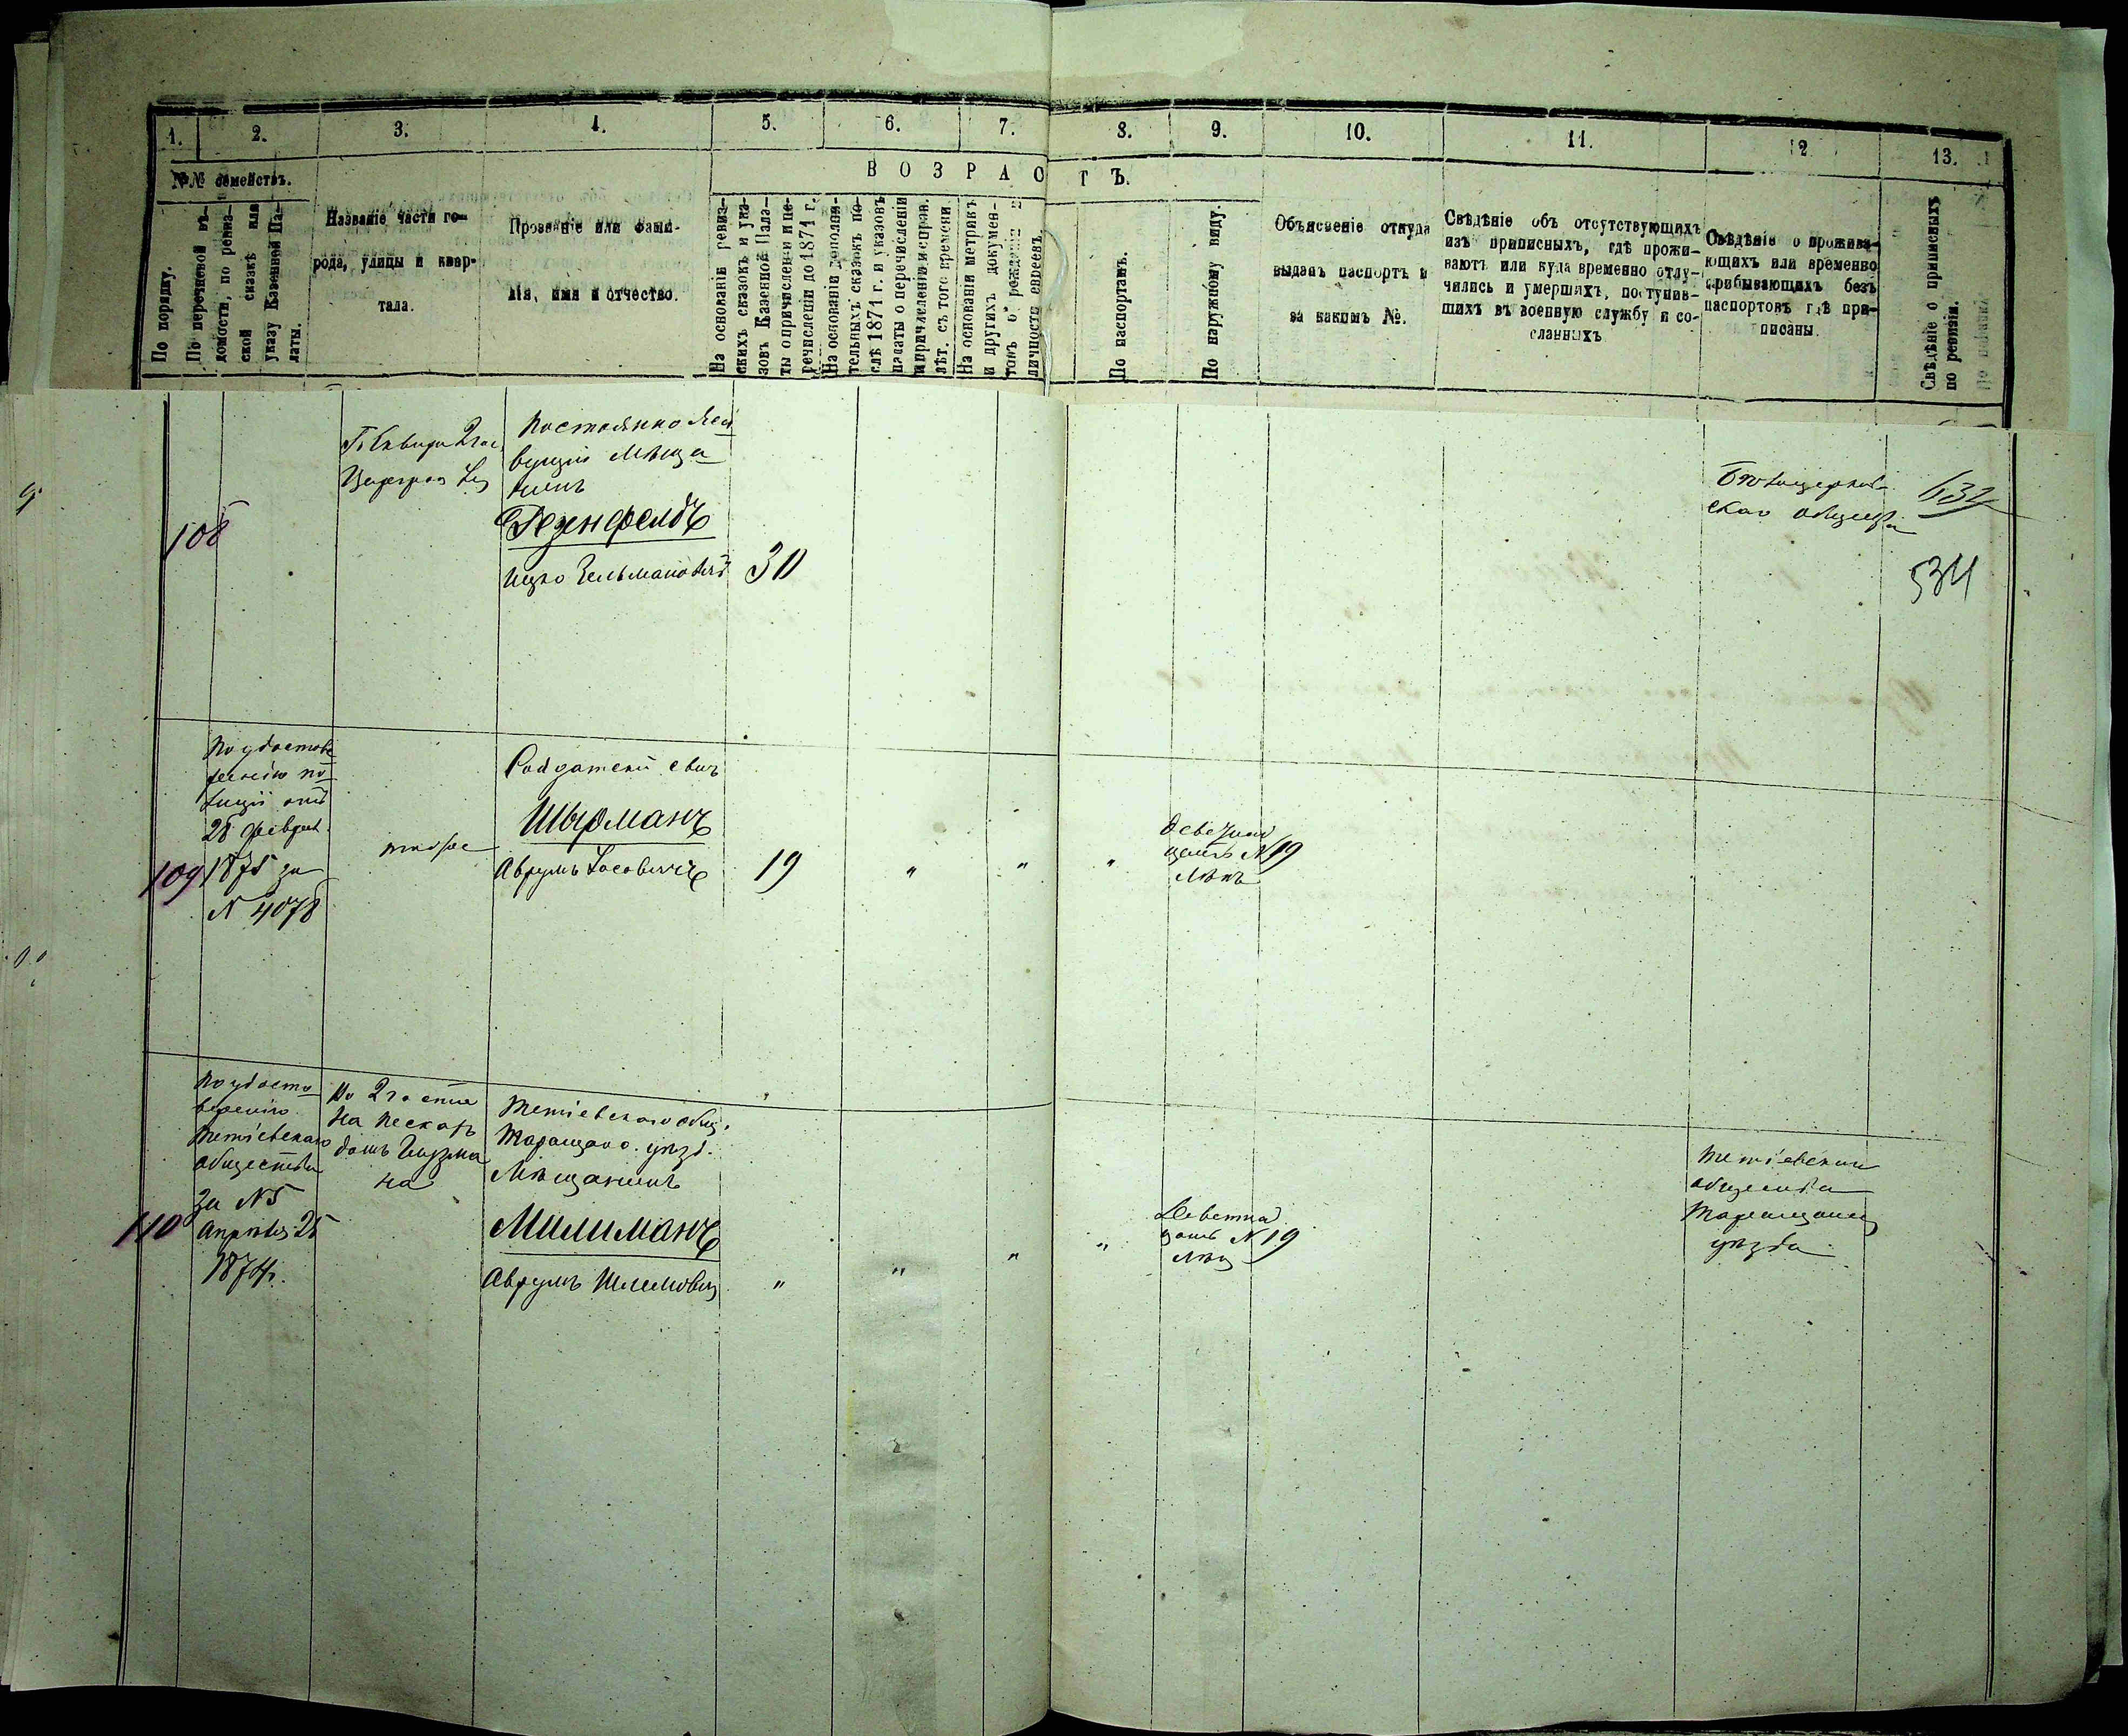 1.
2.
3.
4.
5.
6.
7.
8.
9.
10.
11.
12
13.
№№ семействъ.
По порядку.
По перечневой вѣ-
домости, по ревиз-
ской сказкѣ или
указу Казенной Па-
латы.
Названіе части го-
рода, улицы и квар-
тала.
Прозваніе или фами-
лія, имя и отчество.
ВОЗРАСТЪ.
На основаніи ревиз-
скихъ сказокъ и ука-
зовъ Казенной Пала-
ты о причисленіи и пе-
речисленіи до 1871 г.
На основаніи дополни-
тельныхъ сказокъ по-
слѣ 1871 г. и указовъ
палаты о перечисленіи
и причисленіи и справ.
лѣт. съ того времени.
На основаніи метрикъ
и другихъ докумен-
товъ о рожденіи и
личности евреевъ.
По паспортамъ.
По наружному виду.
Объясненіе откуда
выданъ паспортъ и
за какимъ №.
Свѣдѣніе объ отсутствующихъ
изъ приписныхъ, гдѣ прожи-
ваютъ или куда временно отлу-
чились и умершихъ, поступив-
шихъ въ военную службу и со-
сланныхъ
Свѣдѣніе о прожива-
ющихъ или временно
прибывающихъ безъ
паспортовъ гдѣ при-
писаны.
Свѣдѣніе о приписныхъ
по ревизіи.
108
Постоянно жи
вущій мѣща
нинъ
Ицко Зельмановичъ
30
общества
632
534
По удостове
ренію по
лиціи отъ
28 феврал.
109
1875 за
N 4078
тоже
Солдатскій сынъ
Шырманъ
Аврумъ Іосевичъ
19
"
"
"
N 19
лѣтъ
По удосто
веренію
Тетіевскаго
общества
за N 5
Апрѣля 25
1874 г.
110
Во 2й части
на Пескахъ
домъ
на
Тетіевскаго общ.
Таращан. уѣзд.
Мѣщанинъ
Милиманъ
Аврумъ Шлемович
"
"
"
"
N 19
лѣт
Тетіевскаго
общества
Таращанск
уѣзда